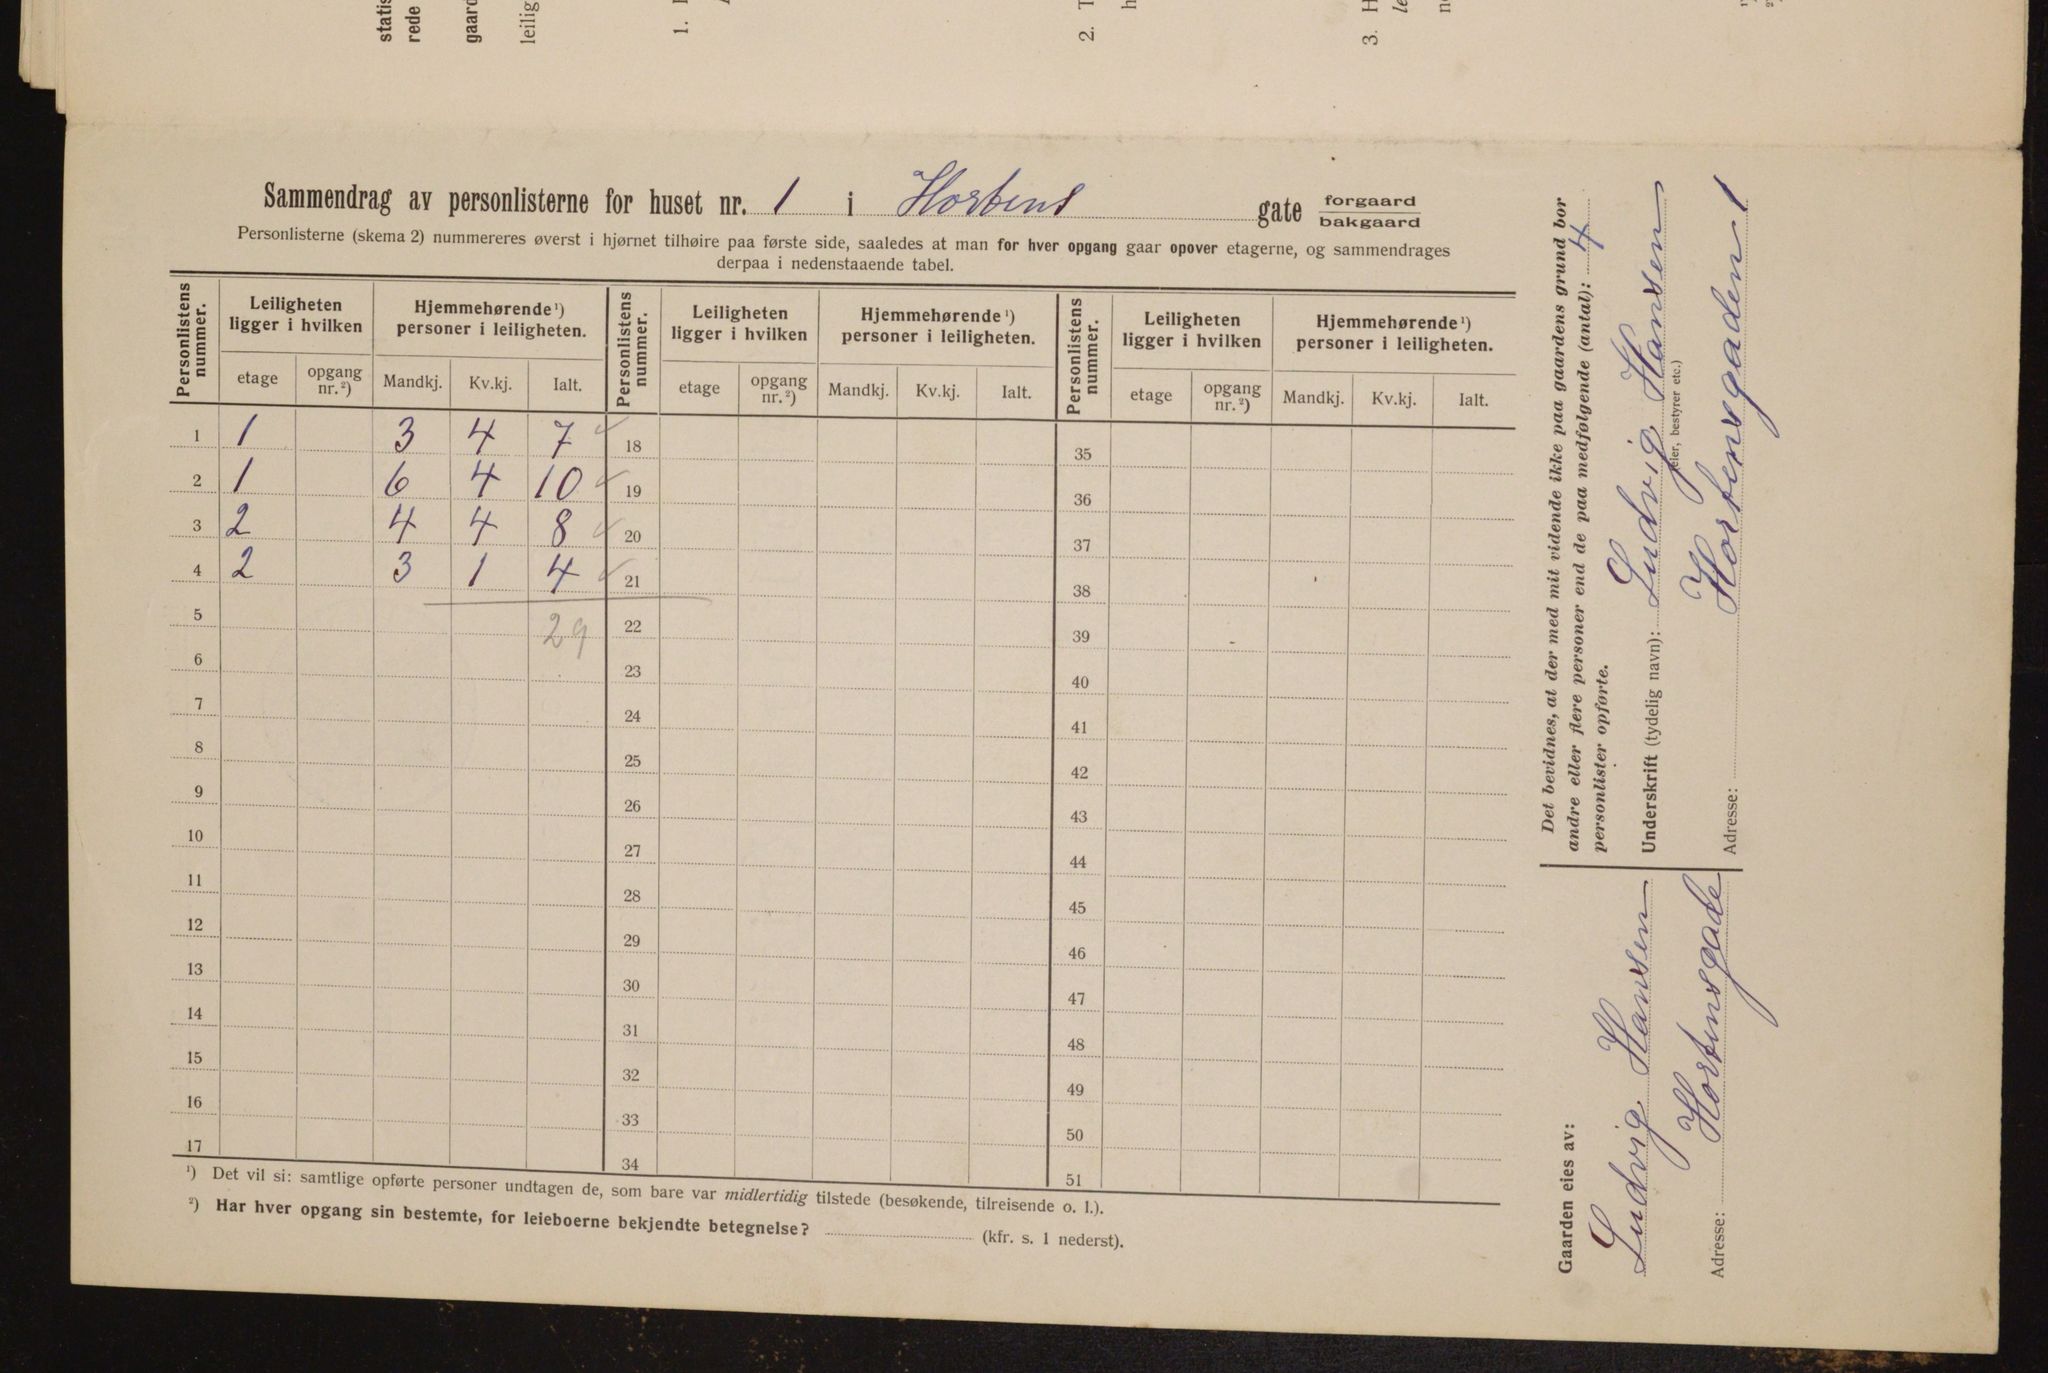 statis
rede
gaard
leilig
1.
2. T
h
3. H
le
n
Sammendrag av personlisterne for huset nr. 1 i Hortens gate forgaard
bakgaard
Personlisterne (skema 2) nummereres øverst i hjørnet tilhøire paa første side, saaledes at man for hver opgang gaar opover etagerne, og sammendrages
derpaa i nedenstaaende tabel.
Personlistens nummer. Leiligheten ligger i hvilken Hjemmehørende ¹) personer i leiligheten. Personlistens nummer. Leiligheten ligger i hvilken Hjemmehørende ¹) personer i leiligheten. Personlistens nummer. Leiligheten ligger i hvilken Hjemmehørende ¹) personer i leiligheten.
etage opgang nr. ²) Mandkj. Kv.kj. Ialt. etage opgang nr. ²) Mandkj. Kv.kj. Ialt. etage opgang nr. ²) Mandkj. Kv.kj. Ialt.
1 1 3 4 7 ✓ 18 35
2 1 6 4 10 ✓ 19 36
3 2 4 4 8 ✓ 20 37
4 2 3 1 4 ✓ 21 38
5 29 22 39
6 23 40
7 24 41
8 25 42
9 26 43
10 27 44
11 28 45
12 29 46
13 30 47
14 31 48
15 32 49
16 33 50
17 34 51
¹) Det vil si: samtlige opførte personer undtagen de, som bare var midlertidig tilstede (besøkende, tilreisende o. l.).
²) Har hver opgang sin bestemte, for leieboerne bekjendte betegnelse? (kfr. s. 1 nederst).
Det bevidnes, at der med mit vidende ikke paa gaardens grund bor
andre eller flere personer end de paa medfølgende (antal): 4
personlister opførte.
Underskrift (tydelig navn): Ludvig Hansen
(eier, bestyrer etc.)
Adresse: Hortensgaden 1
Gaarden eies av:
Ludvig Hansen
Adresse: Hortensgade